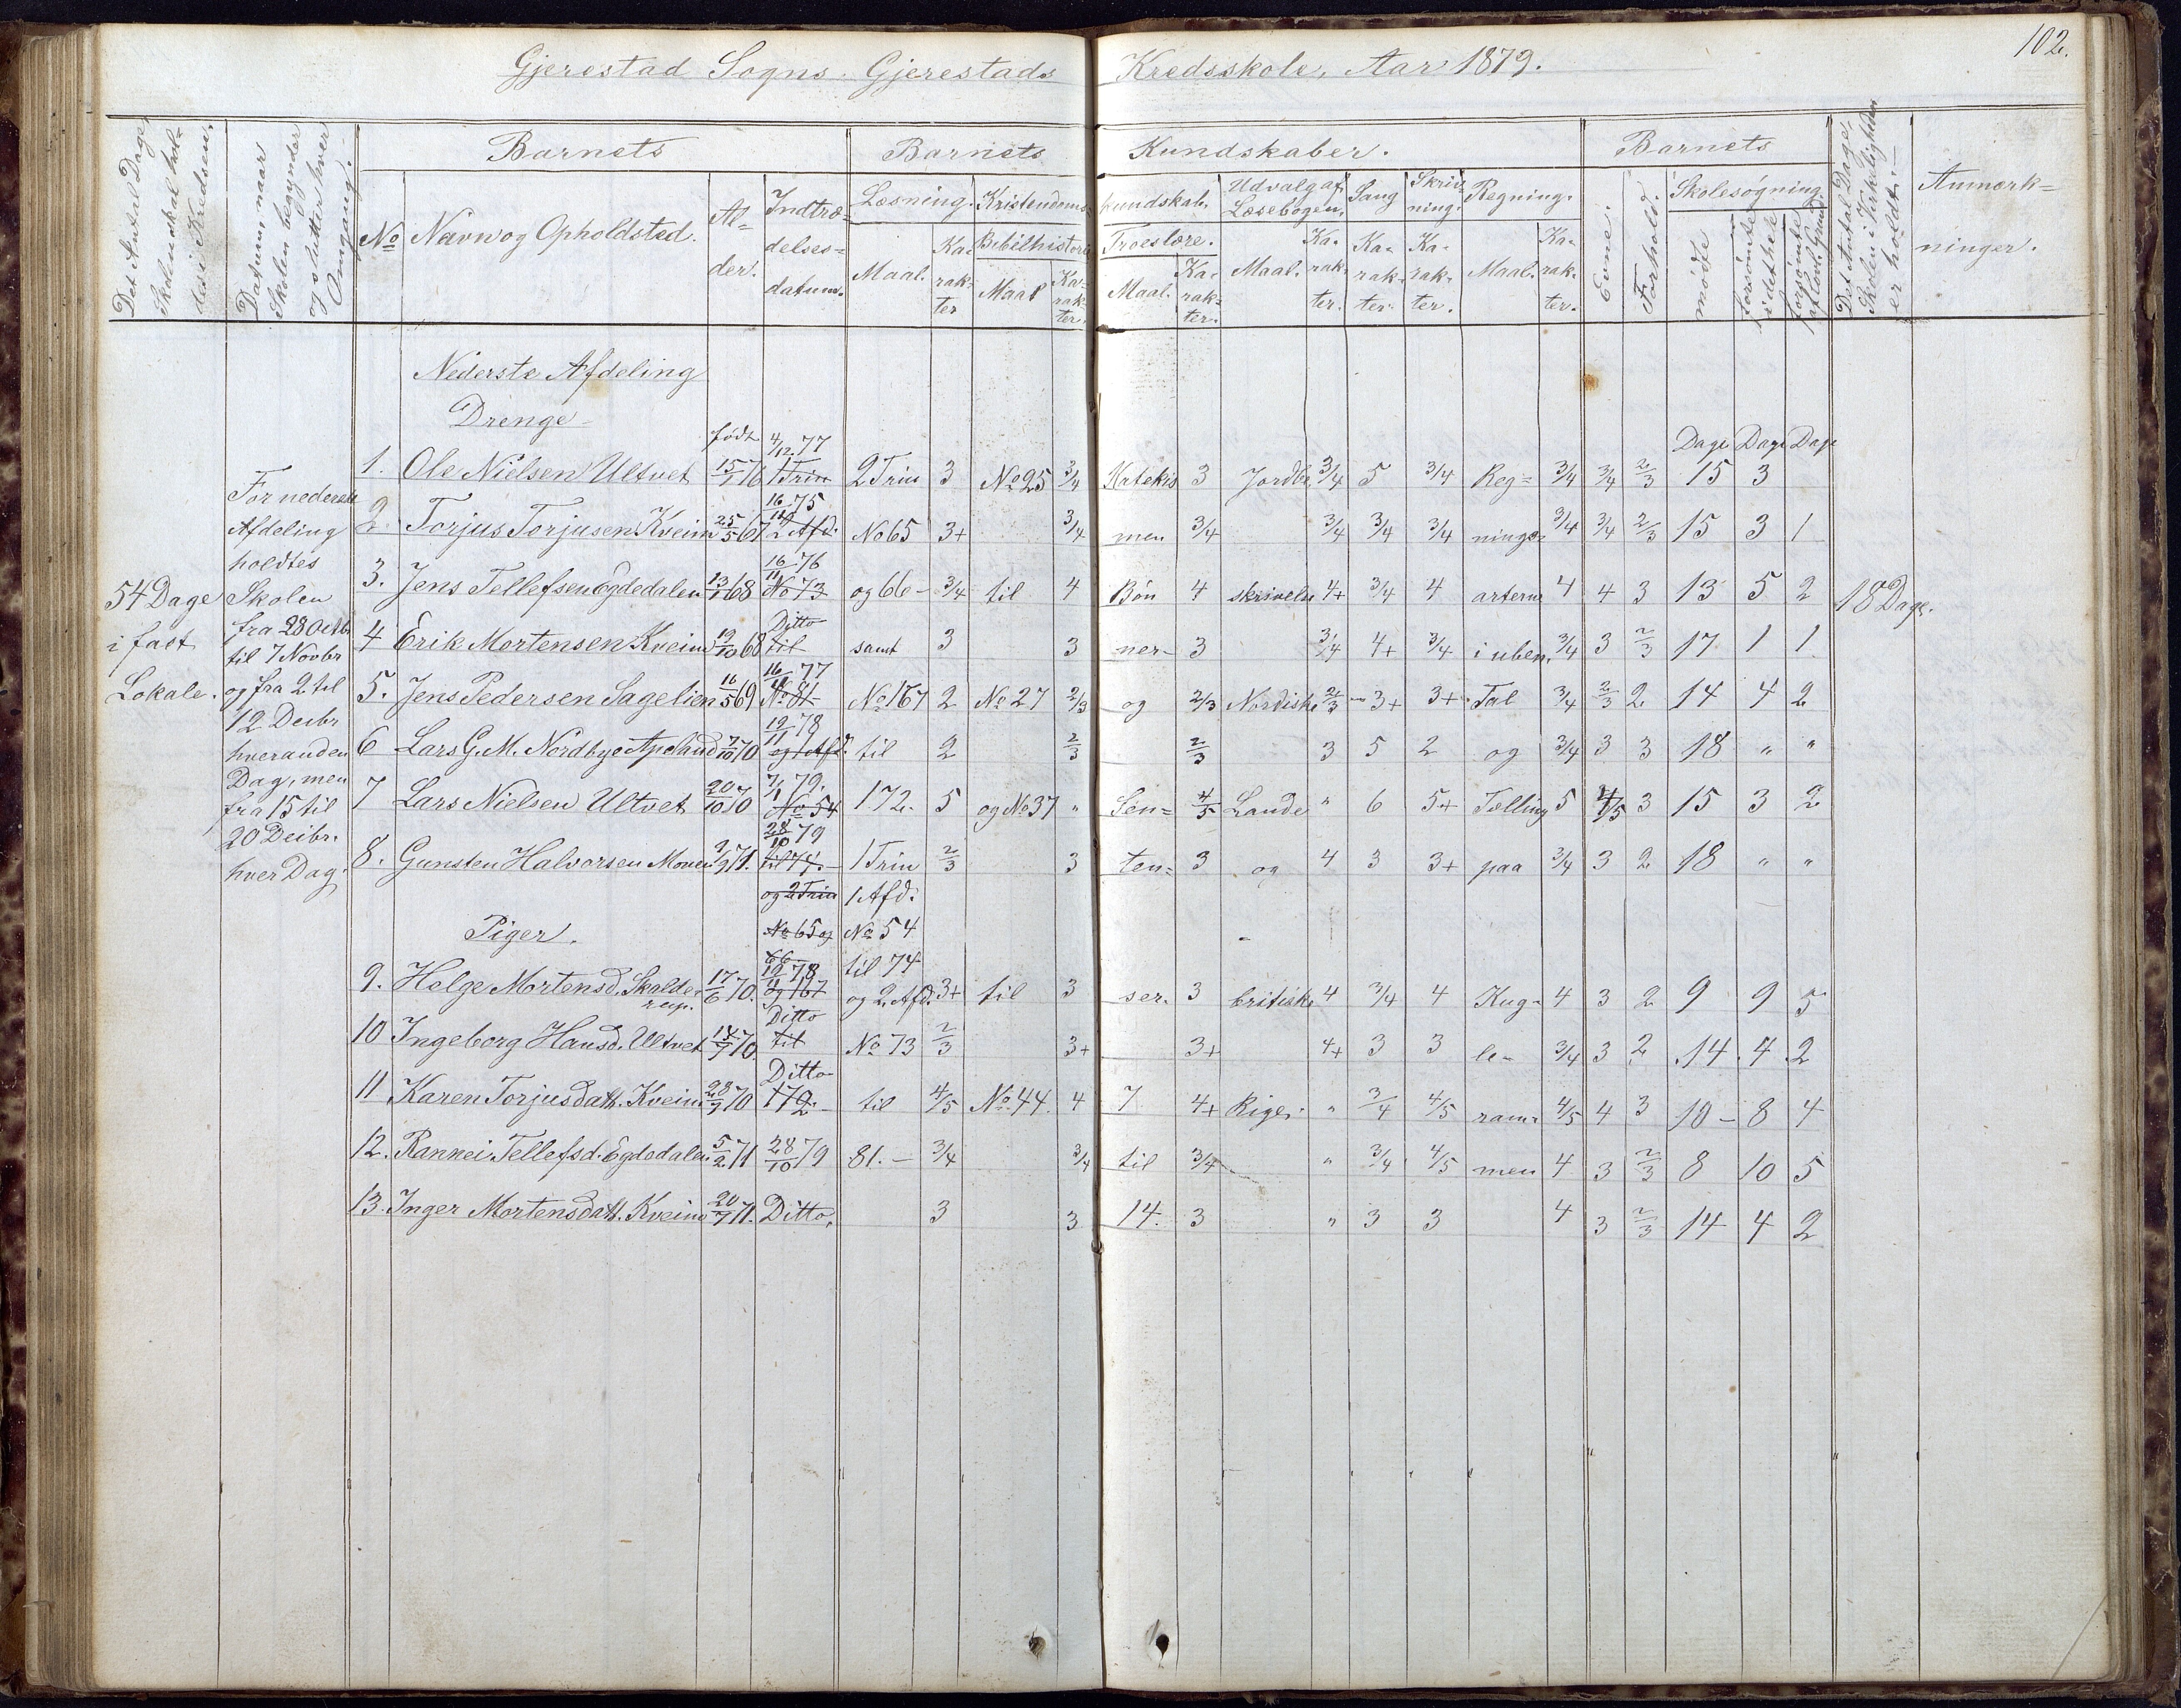 102.
Gjerestad Sogns Gjerestads Kredsskole, Aar 1879.
Det Antal Dage, Skolen skal holdes i Kredsen.
Datum, naar Skolen begynder og slutter hver Omgang.
Barnets
No Navn og Opholdsted. Alder. Indtrædelsesdatum.
Barnets Kundskaber.
Læsning. Maal. Karakter
Kristendomskundskab.
Bibelhistorie Maal Karakter.
Troeslære. Maal. Karakter.
Udvalg af Læsebogen. Maal. Karakter.
Sang Karakter.
Skrivning. Karakter.
Regning. Maal. Karakter.
Barnets
Evne. Forhold.
Skolesøgning
mødte forsømte i det hele forsømte af lovl. Grund
Det Antal Dage, Skolen i Virkeligheden er holdt.
Anmærkninger.
54 Dage
i fast
Lokale.
For nederste
Afdeling
holdtes
Skolen
fra 28 Octb
til 7 Novbr
og fra 2 til
12 Decbr
hveranden
Dag, men
fra 15 til
20 Decbr.
hver Dag.
Nederste Afdeling
Drenge
født Dage Dage Dage
1. Ole Nielsen Ultvet 4/12 77 2 Trin 3 No 25 3/4 Katekis 3 Jordbe 3/4 5 3/4 Reg= 3/4 3/4 2/3 15 3
2. Torjus Torjusen Kveim 25/5 67 16/11 75 No 65 3+ 3/4 men 3/4 3/4 3/4 3/4 nings= 3/4 3/4 2/3 15 3 1
3. Jens Tellefsen Egdedalen 13/1 68 16/11 76 og 66 - 3/4 til 4 Bøn 4 skrivelse 4+ 3/4 4 arterne 4 4 3 13 5 2 18 Dage.
4 Erik Mortensen Kveim 19/10 68 Ditto samt 3 3 ner- 3 3/4 4+ 3/4 i uben. 3/4 3 2/3 17 1 1
5. Jens Pedersen Sagelien 16/5 69 16/11 77 No 167 2 No 27 2/3 og 2/3 Nordiske 2/3 3+ 3+ Tal 3/4 2/3 2 14 4 2
6 Lars G. M. Nordbye Apeland 7/10 70 12/11 78 til 2 2/3 2/3 3 5 2 og 3/4 3 3 18 " "
7 Lars Nielsen Ultvet 20/10 70 7/1 79. 172. 5 og No 37 " Sen= 4/5 Lande " 6 5+ Tælling 5 4/5 3 15 3 2
8. Gunsten Halvorsen Moen 9/9 71. 28/10 79 1 Trin 2/3 3 ten= 3 og 4 3 3+ paa 3/4 3 2 18 " "
og 2 Trin 1 Afd:
No 65 og No 54
Piger.
66 til 74
9. Helge Mortensd. Skalderup. 17/6 70. 12/11 78 og 2. Afd. 3+ til 3 ser. 3 britiske 4 3/4 4 Kug- 4 3 2 9 9 5
10 Ingeborg Hansd. Ultvet 70. Ditto No 73 2/3 3+ 3+ 4+ 3 3 le- 3/4 3 2 14 4 2
11 Karen Torjusdatt. Kveim 28/9 70 Ditto til 4/5 No 44. 4 7 4+ Riger. " 3/4 4/5 ram- 4/5 4 3 10 - 8 4
12. Rannei Tellefsd. Egdedalen 5/2 71 28/10 79 81. - 3/4 3/4 til 3/4 " 3/4 4/5 men 4 3 2/3 8 10 5
13. Inger Mortensdatt. Kveim 20/7 71. Ditto, 3 3 14. 3 " 3 3 4 3 2/3 14 4 2